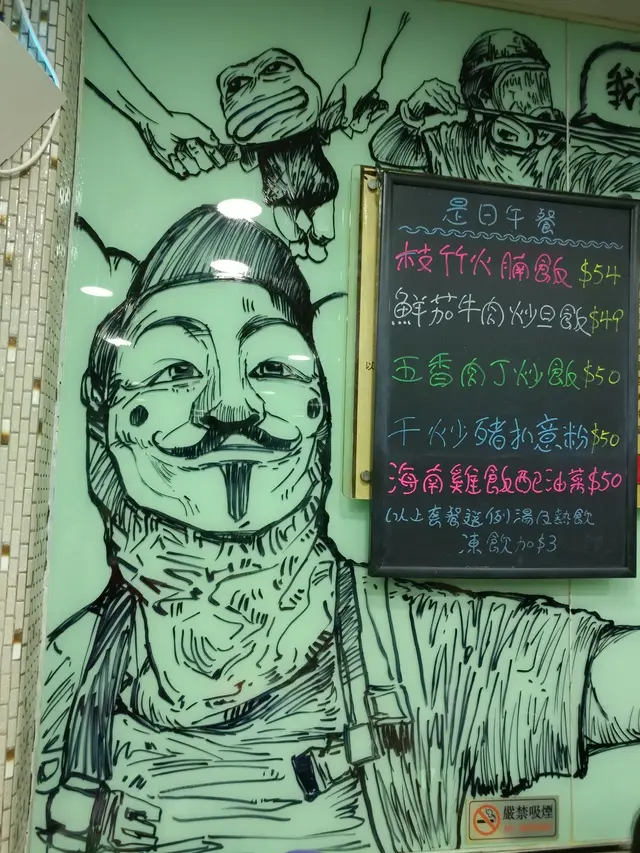 我
是日午餐
枝竹火腩飯 $54
鮮茄牛肉炒旦飯 $49
五香肉丁炒飯 $50
干炒豬扒意粉 $50
海南雞飯配油菜 $50
以上套餐送例湯及熱飲
凍飲加$3
以
嚴禁吸煙